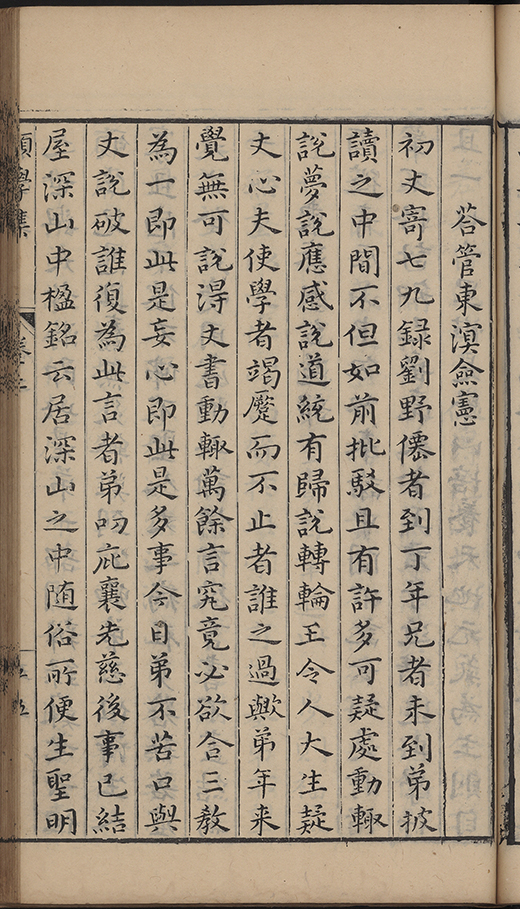 荅管東溟僉憲
初丈寄七九録劉野僊者到丁年兄者未到弟披
讀之中間不但如前批駁且有許多可疑處動輙
說夢說應感說道統有歸說轉輪王令人大生疑
丈心夫使學者竭蹷而不止者誰之過歟弟年来
覺無可說淂丈書動輙萬餘言究竟必欲合三教
為一即此是妄心即此是多事今日弟不苦口與
丈說破誰復為此言者弟叨庇襄先慈後事已結
屋深山中楹銘云居深山之中随俗所便生聖明
願學集
卷之三